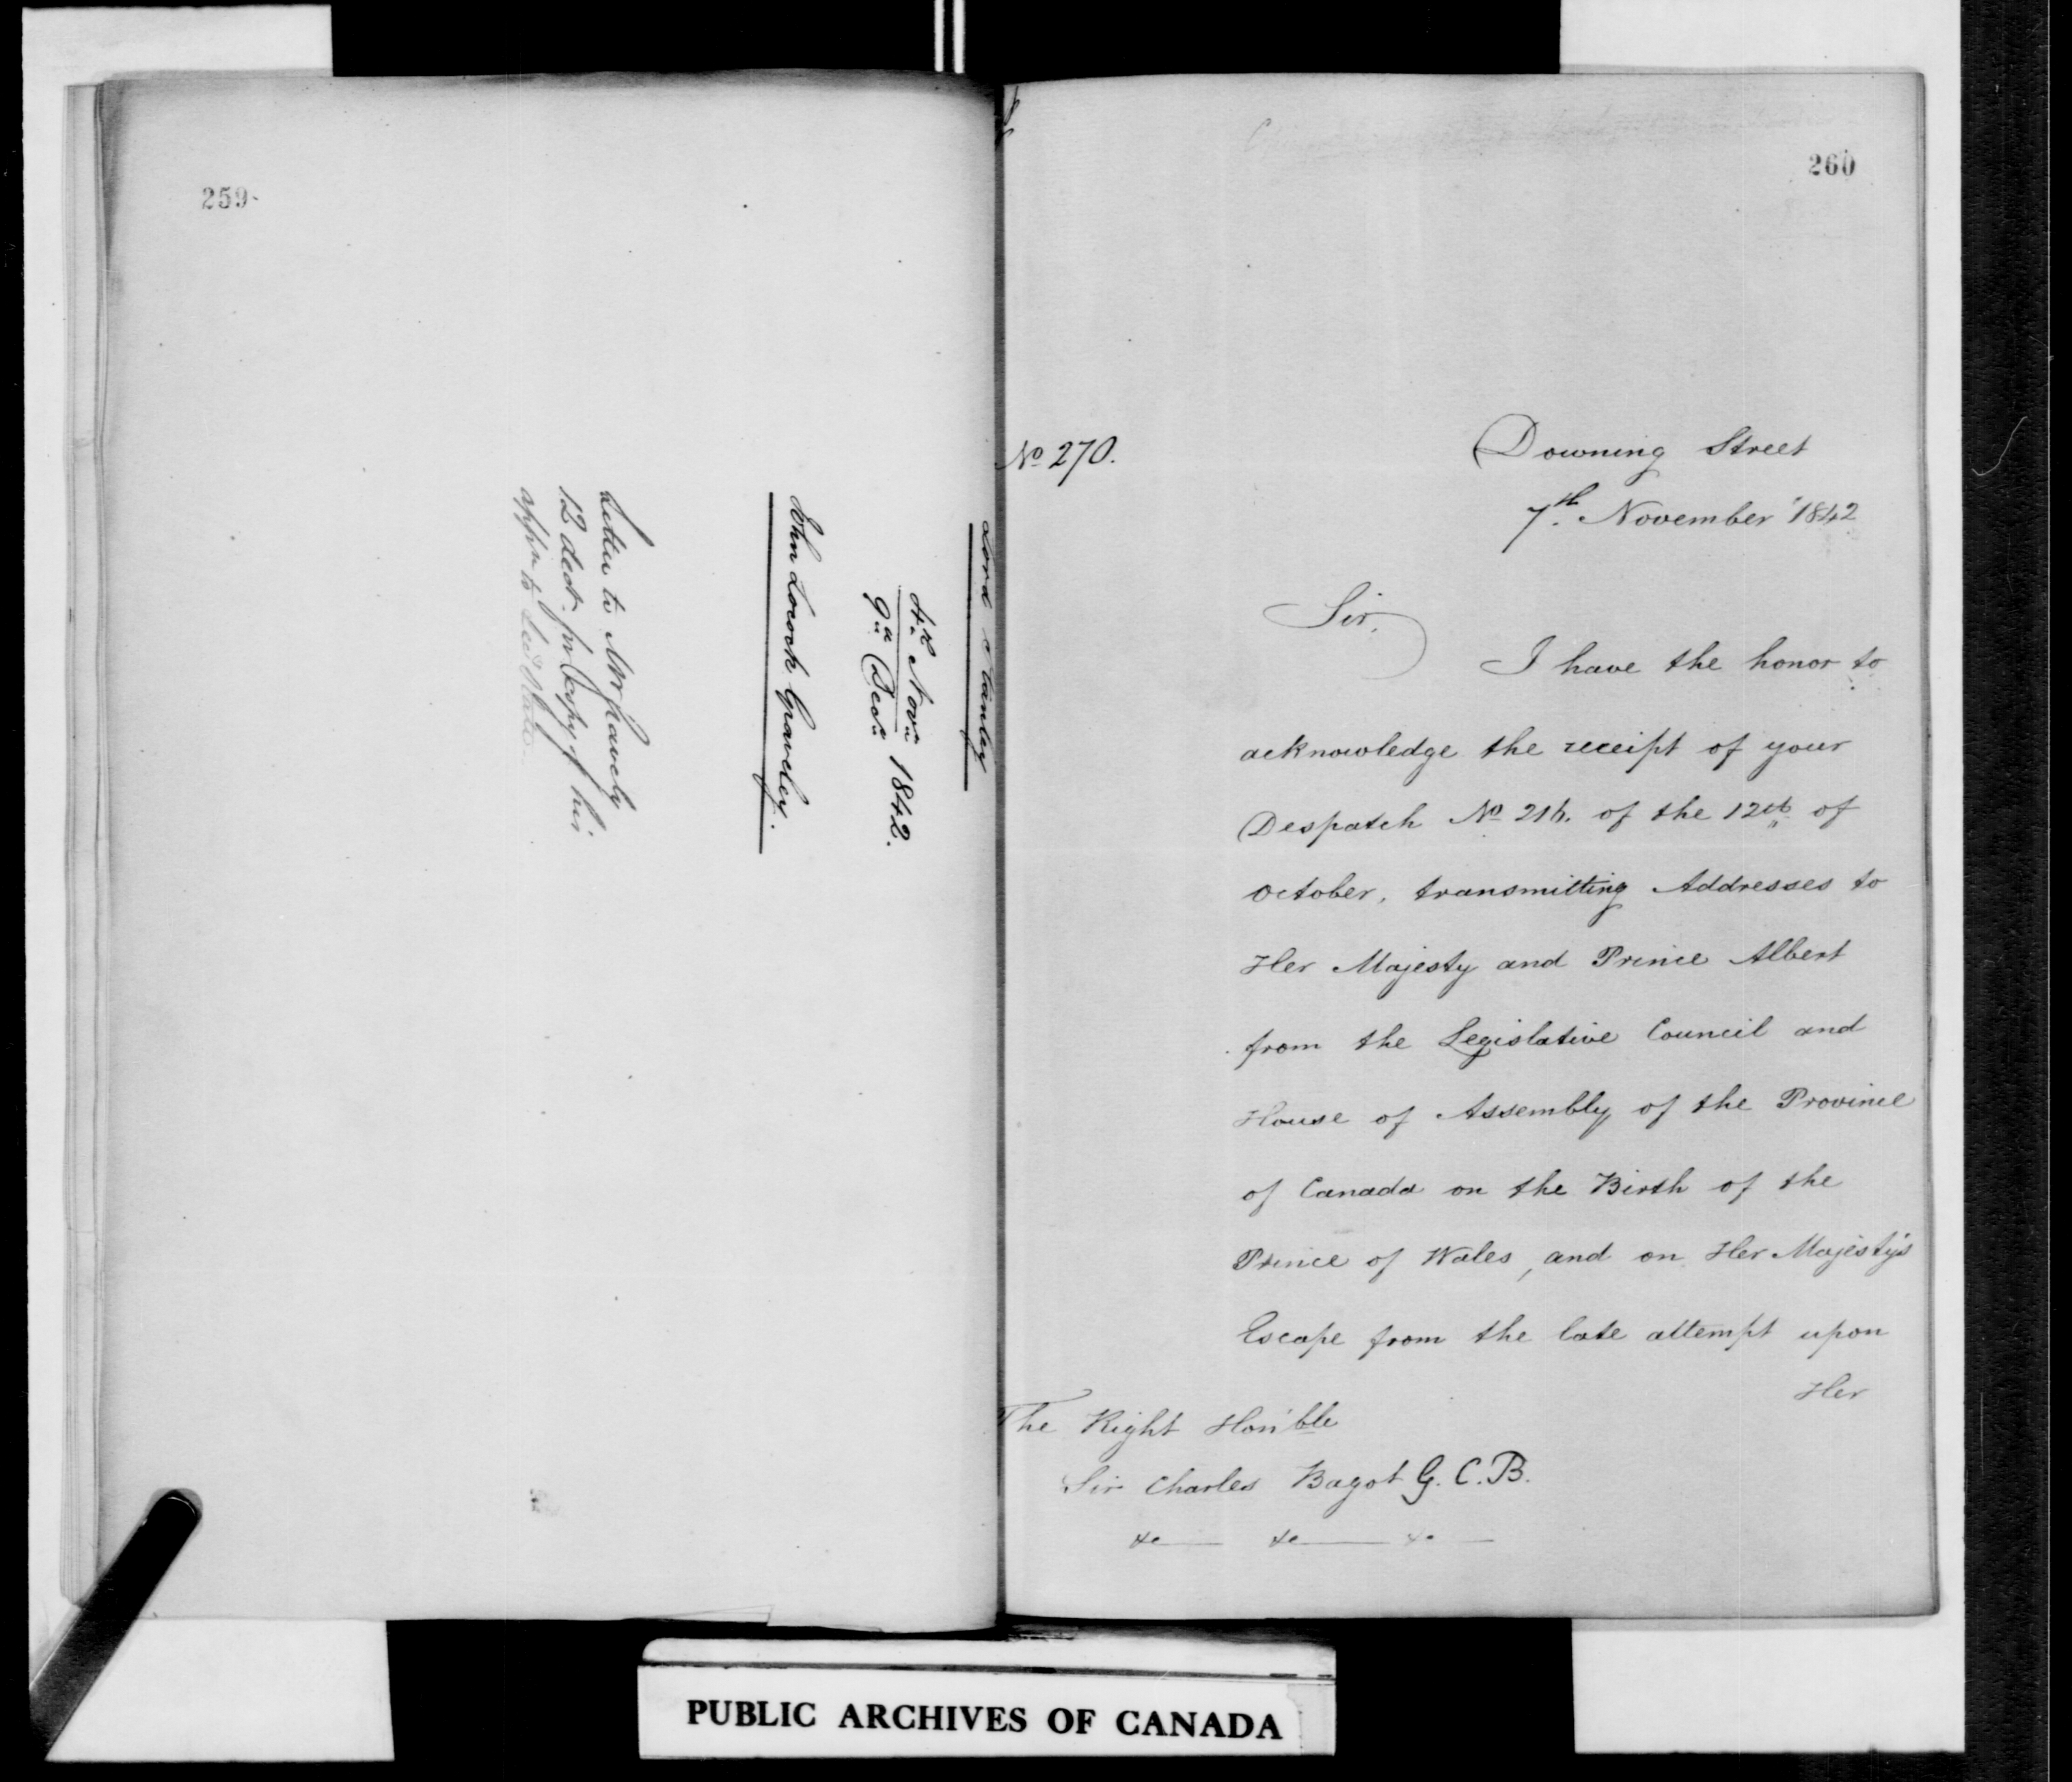 259
Lord Stanley
4th Novr
9th Decr 1842.
John Locock Graveley.
Letter to Mr Gravely
12 decr. for Copy of his
appn to
260
No 270.
Downing Street
7th. November 1842
Sir,
I have the honor to
acknowledge the receipt of your
Despatch No 216. of the 12th of
October, transmitting Addresses to
Her Majesty and Prince Albert
from the Legislative Council and
House of Assembly of the Province
of Canada on the Birth of the
Prince of Wales, and on Her Majesty's
Escape from the late attempt upon
Her
The Right Honble
Sir Charles Bagot G.C.B.
&c &c &c
PUBLIC ARCHIVES OF CANADA